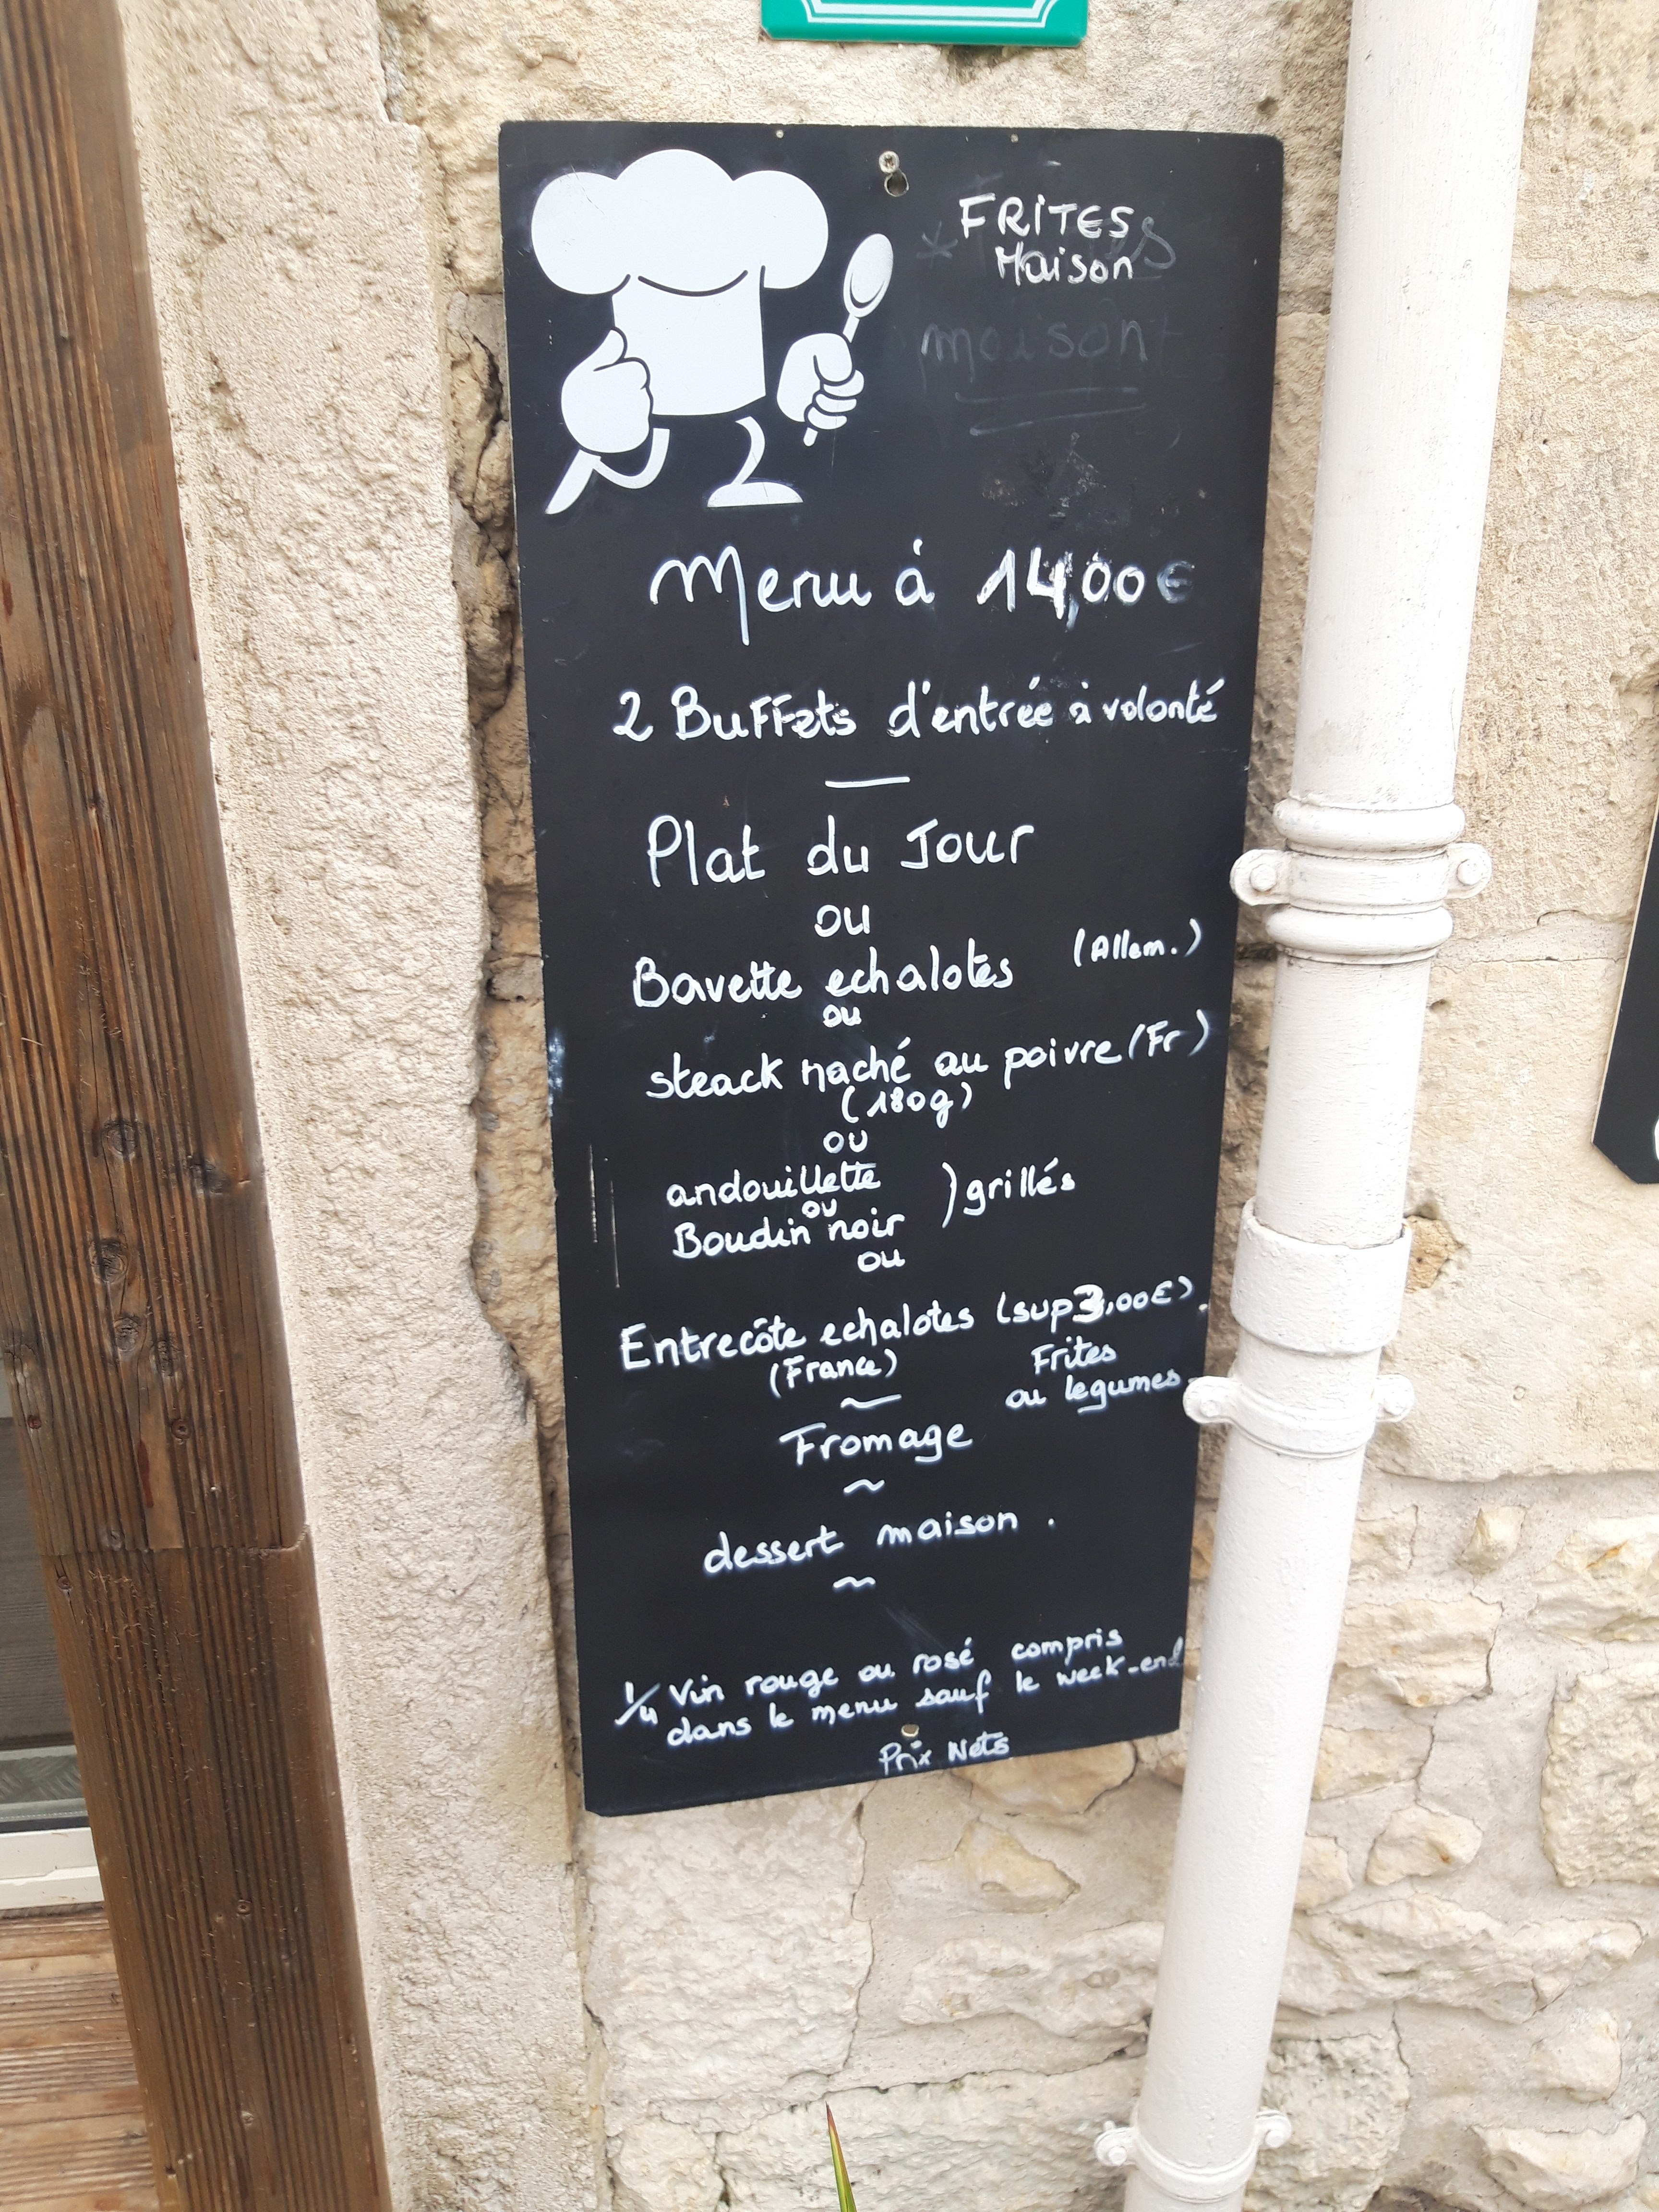 FRITES
Maison
maison
Menu à 14,00€
2 Buffets d'entrée à volonté
Plat du Jour
ou
Bavette echalotes (Allem.)
ou
steack haché au poivre (Fr)
(180g)
ou
andouillette
ou
Boudin noir
) grillés
ou
Entrecôte echalotes (sup 3,00€).
(France)
Frites
ou legumes
Fromage
dessert maison.
1/4 Vin rouge ou rosé compris
dans le menu sauf le week-end
Prix Nets